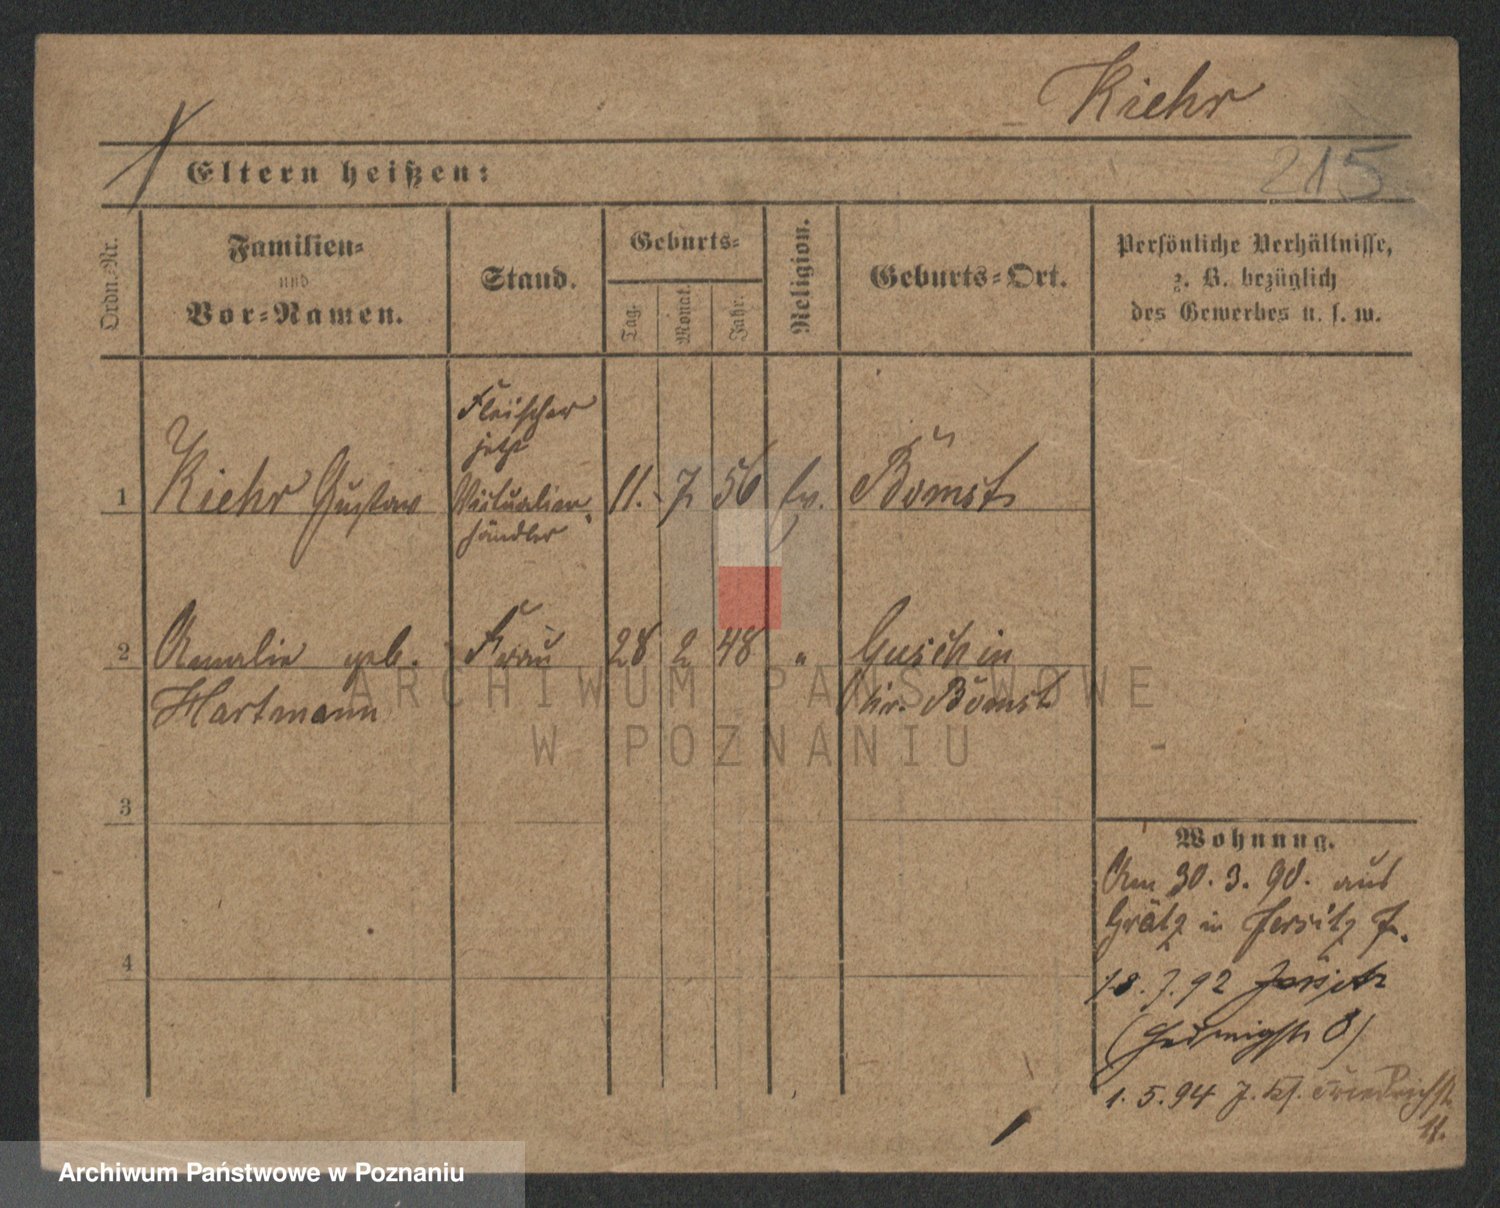 Kiehr
215
Eltern heißen:
Ordn.-Nr.
Familien-
und
Vor-Namen.
Stand.
Geburts-
Tag.
Monat.
Jahr.
Religion.
Geburts-Ort.
Persönliche Verhältnisse,
z. B. bezüglich
des Gewerbes u. s. w.
1
Kiehr Gustav
Fleischer
jetzt
Victualien-
händler
11. 7 56 Ev. Bomst
2
Amalie geb.
Hartmann
Frau
28 2 48 "
Guschin
Kr. Bomst
3
4
Wohnung.
Am 30. 3. 90. aus
Grätz in Jersitz
18. 7. 92 Jersitz
(Hedwigstr 8)
1. 5. 94 J. Kl. Friedrichstr
11.
ARCHIWUM PAŃSTWOWE
W POZNANIU
Archiwum Państwowe w Poznaniu